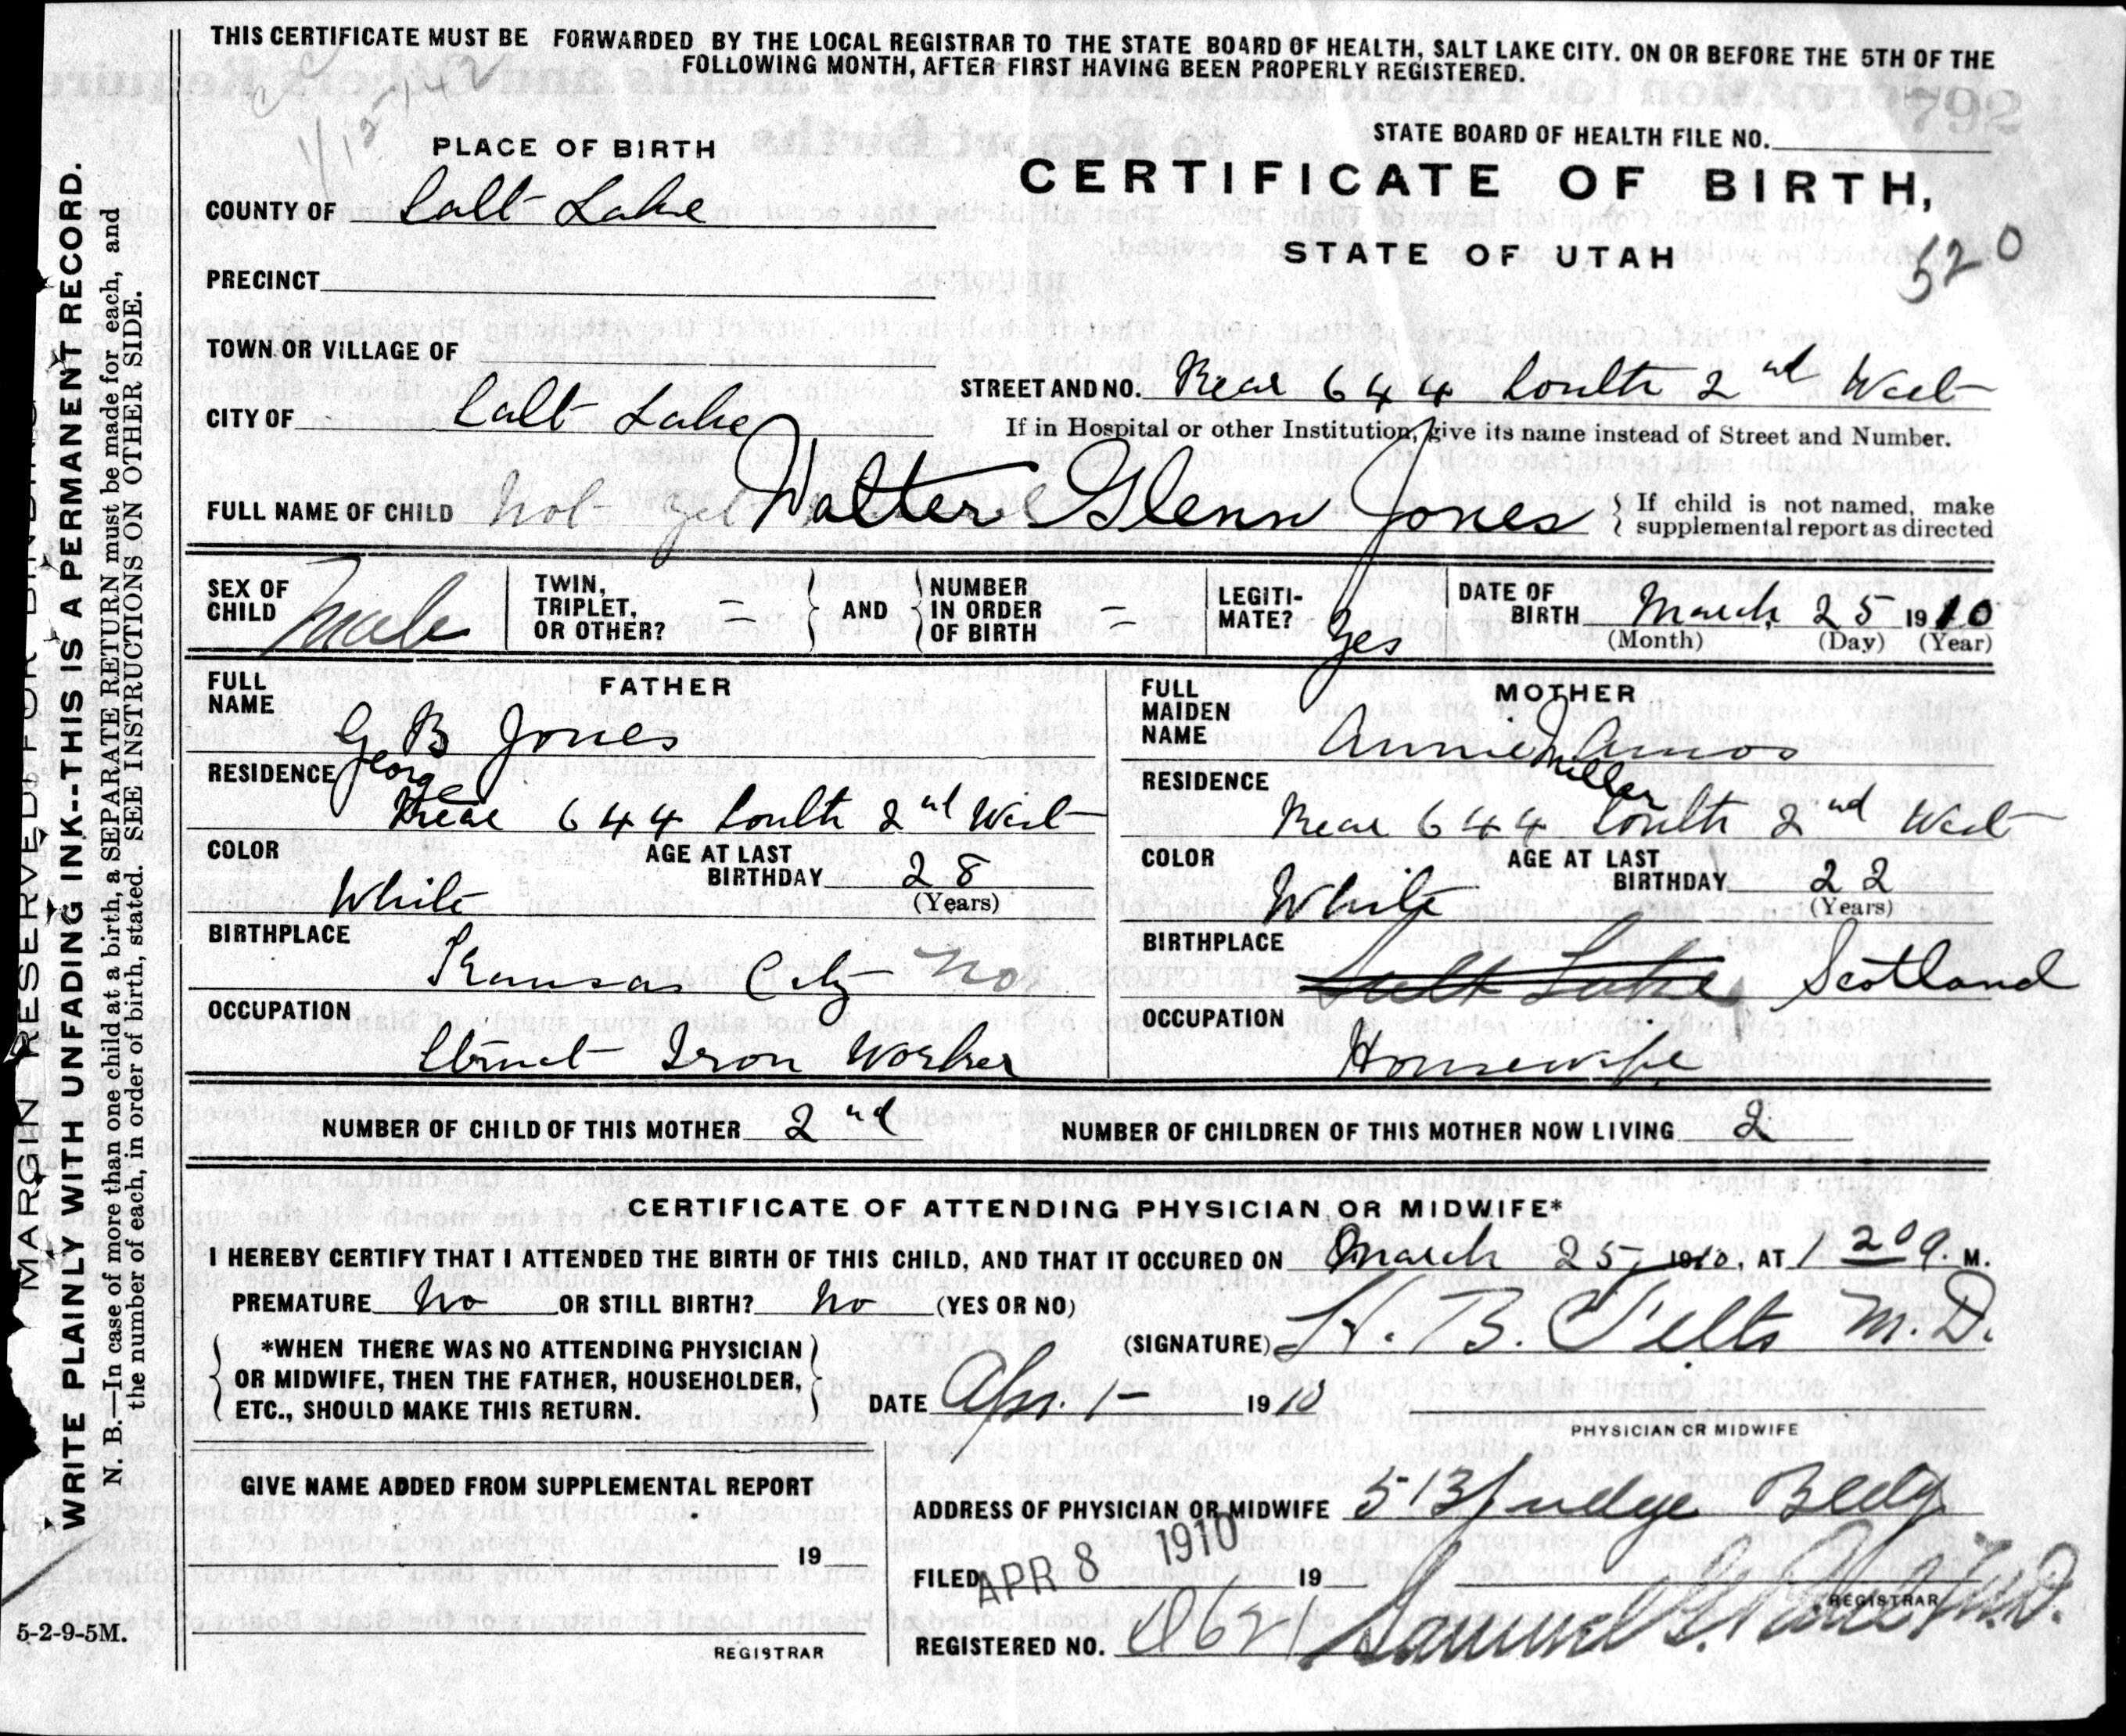 THIS CERTIFICATE MUST BE FORWARDED BY THE LOCAL REGISTRAR TO THE STATE BOARD OF HEALTH, SALT LAKE CITY. ON OR BEFORE THE 5TH OF THE
FOLLOWING MONTH, AFTER FIRST HAVING BEEN PROPERLY REGISTERED.
792
STATE BOARD OF HEALTH FILE NO.
PLACE OF BIRTH
CERTIFICATE OF BIRTH,
COUNTY OF Salt Lake
STATE OF UTAH
520
PRECINCT
TOWN OR VILLAGE OF
STREET AND NO. Rear 644 South 2nd West
CITY OF Salt Lake
If in Hospital or other Institution, give its name instead of Street and Number.
FULL NAME OF CHILD Not Walter Glenn Jones
If child is not named, make
supplemental report as directed
SEX OF CHILD Male
TWIN, TRIPLET, OR OTHER? –
AND
NUMBER IN ORDER OF BIRTH –
LEGITI-MATE? Yes
DATE OF BIRTH March 25 1910
(Month) (Day) (Year)
FATHER
FULL NAME G B Jones
George
RESIDENCE
Rear 644 South 2nd West
COLOR White
AGE AT LAST BIRTHDAY 28
(Years)
BIRTHPLACE
Kansas City Mo
OCCUPATION
Struct Iron Worker
MOTHER
FULL MAIDEN NAME Annie M Amos
Miller
RESIDENCE
Rear 644 South 2nd West
COLOR White
AGE AT LAST BIRTHDAY 22
(Years)
BIRTHPLACE
Salt Lake Scotland
OCCUPATION
Housewife
NUMBER OF CHILD OF THIS MOTHER 2nd
NUMBER OF CHILDREN OF THIS MOTHER NOW LIVING 2
CERTIFICATE OF ATTENDING PHYSICIAN OR MIDWIFE*
I HEREBY CERTIFY THAT I ATTENDED THE BIRTH OF THIS CHILD, AND THAT IT OCCURED ON March 25, 1910, AT 1 20 a. M.
PREMATURE No OR STILL BIRTH? No (YES OR NO)
*WHEN THERE WAS NO ATTENDING PHYSICIAN
OR MIDWIFE, THEN THE FATHER, HOUSEHOLDER,
ETC., SHOULD MAKE THIS RETURN.
(SIGNATURE) H. B. Felts M.D.
DATE Apr. 1- 1910
PHYSICIAN OR MIDWIFE
GIVE NAME ADDED FROM SUPPLEMENTAL REPORT
19
REGISTRAR
ADDRESS OF PHYSICIAN OR MIDWIFE 513 Judge Bldg
FILED APR 8 1910 19
REGISTRAR
REGISTERED NO. D621 Samuel G. M.D.
MARGIN RESERVED FOR BINDING
WRITE PLAINLY WITH UNFADING INK--THIS IS A PERMANENT RECORD.
N. B.—In case of more than one child at a birth, a SEPARATE RETURN must be made for each, and
the number of each, in order of birth, stated. SEE INSTRUCTIONS ON OTHER SIDE.
5-2-9-5M.